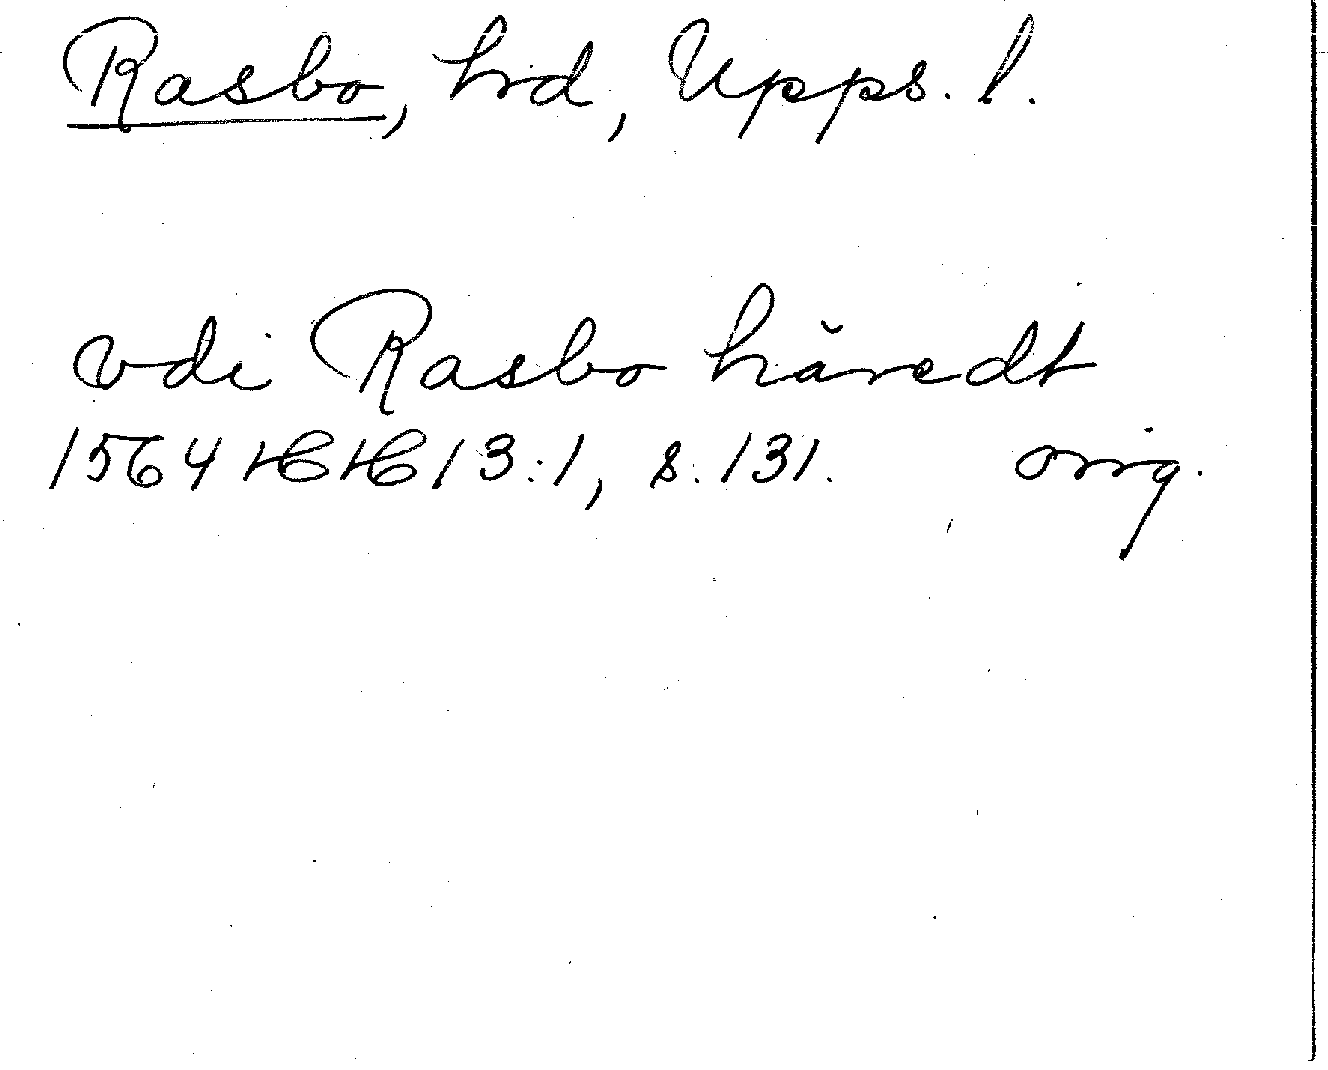 Rasbo, hd, Upps. l.
vdi Rasbo håredt
1564 HH 13:1, s. 131. orig.